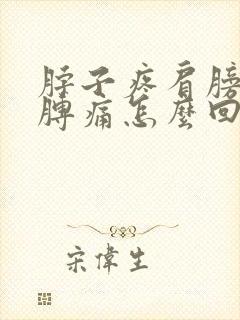 脖子疼肩膀
脾痛怎麼回
宋偉生